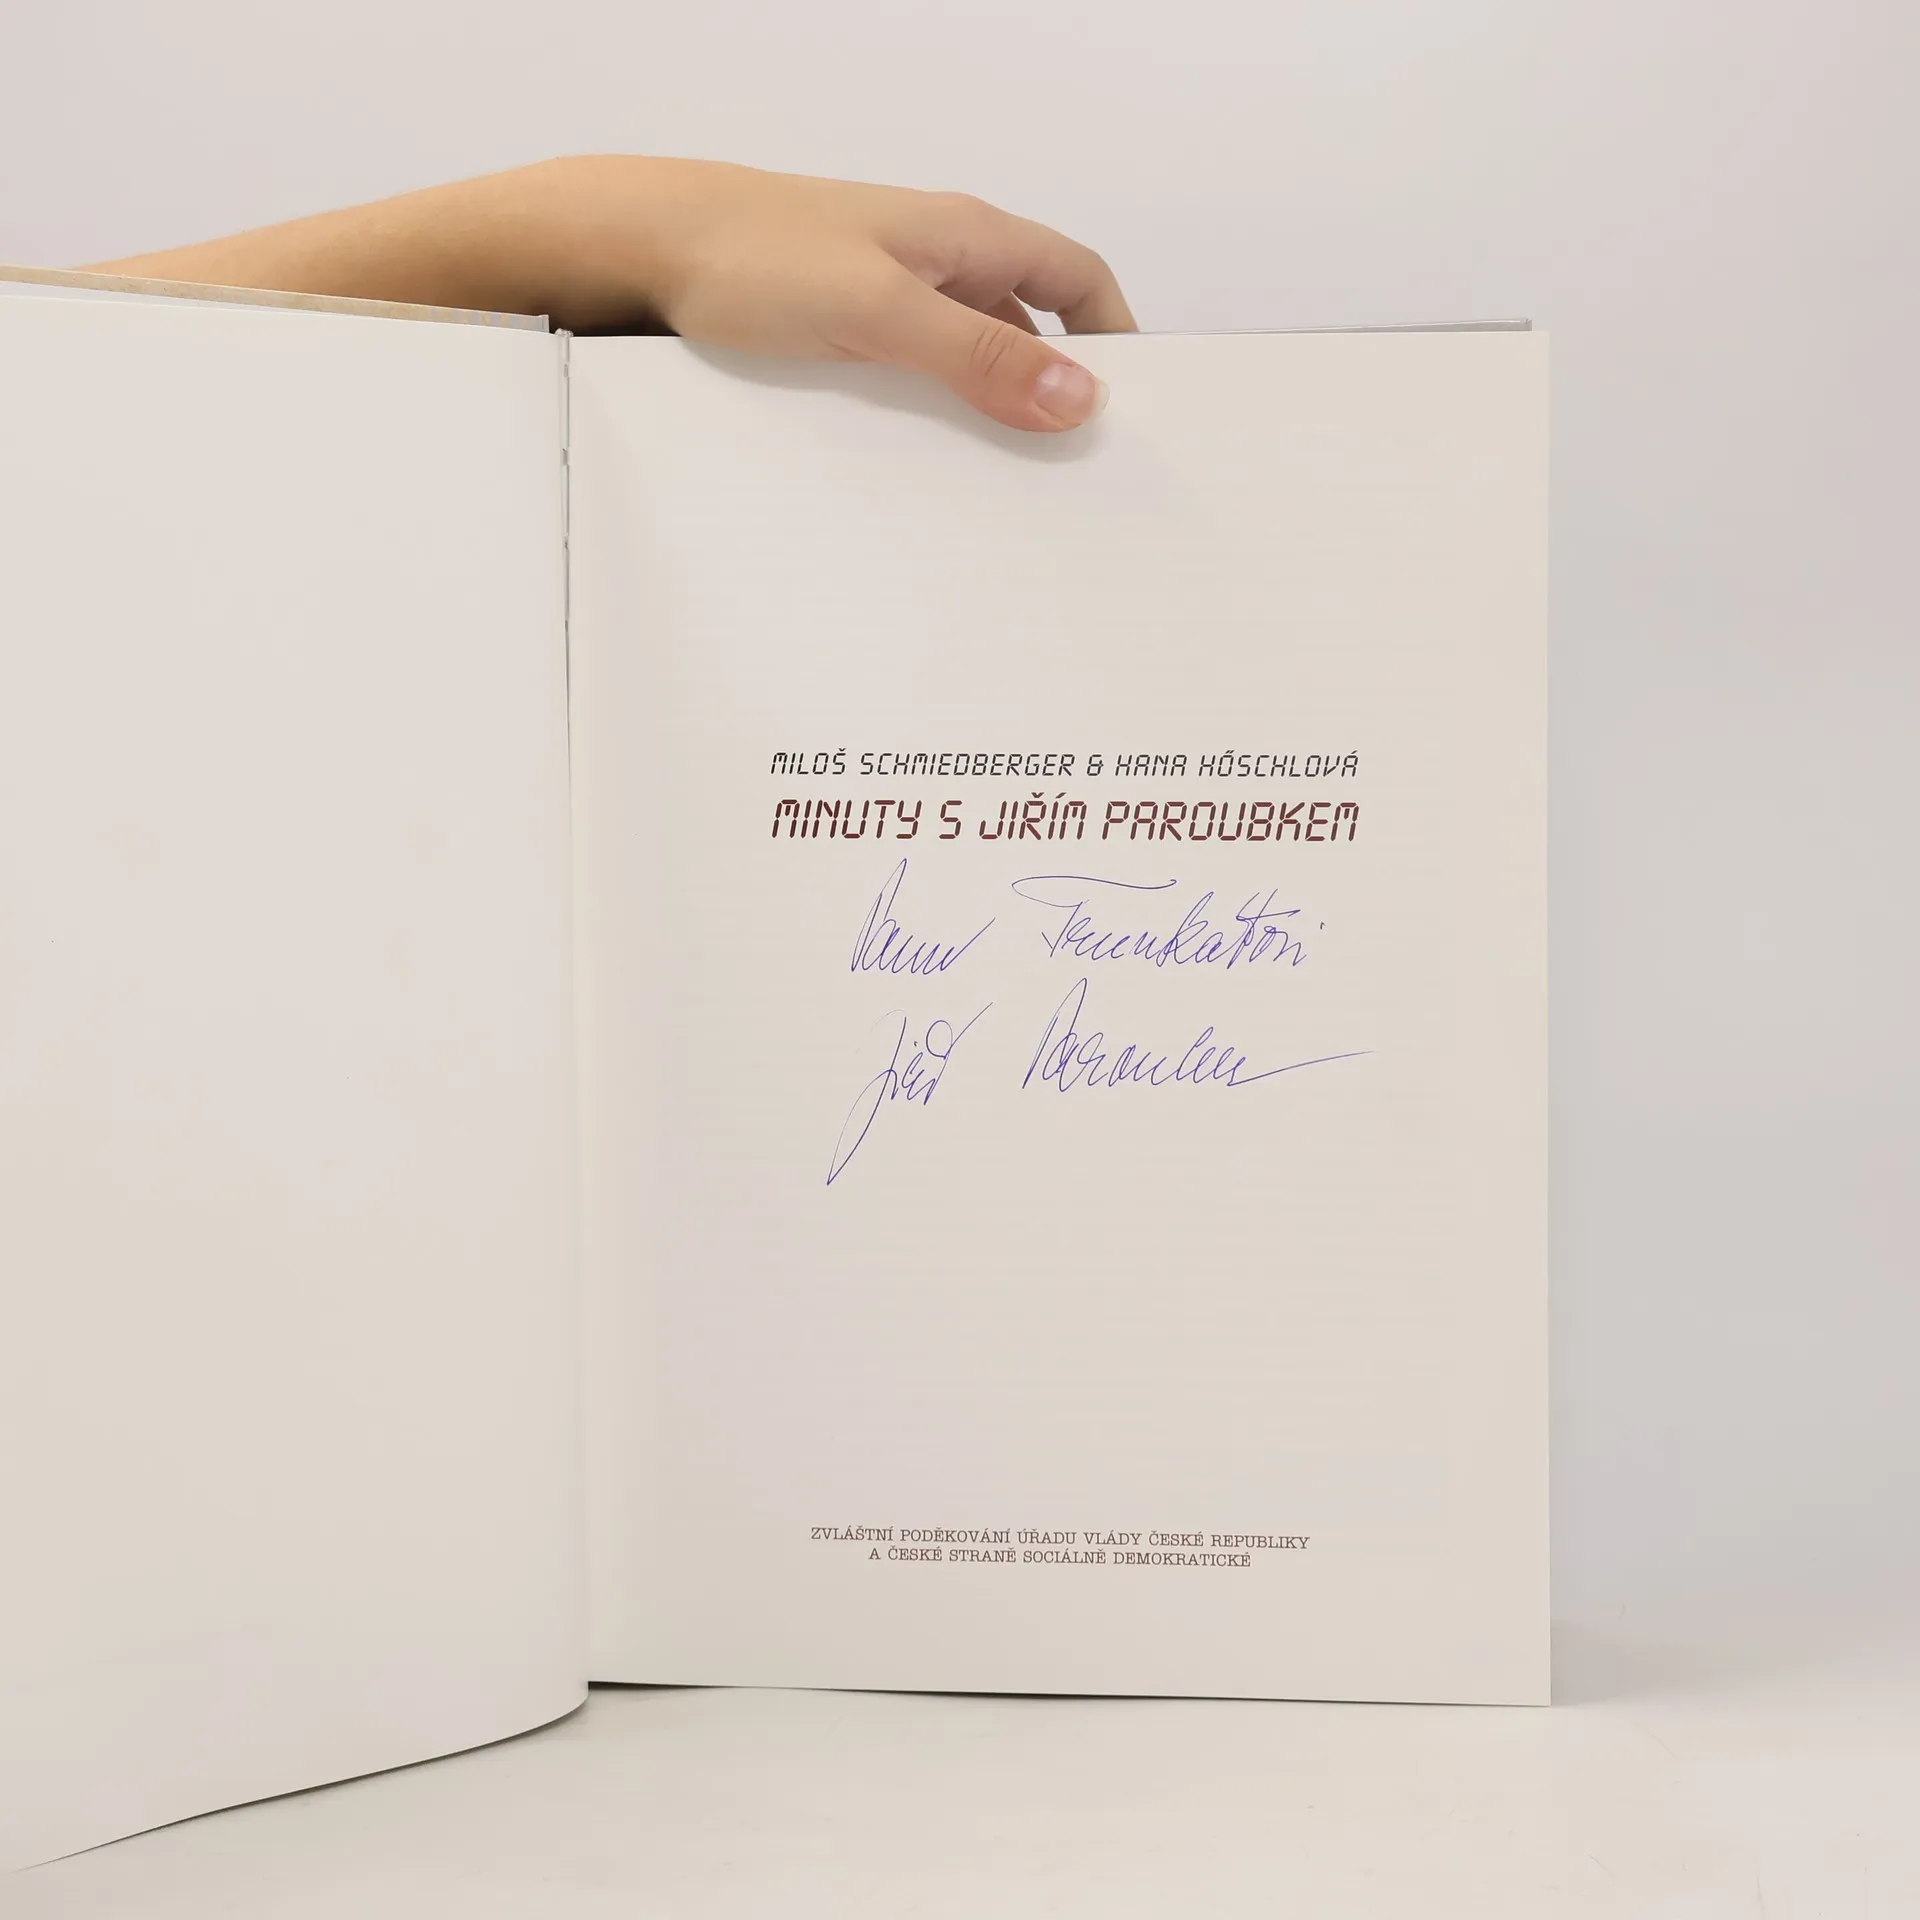 MILOŠ SCHMIEDBERGER & HANA HÖSCHLOVÁ
MINUTY S JIŘÍM PAROUBKEM
Panu
Jiří Paroubek
ZVLÁŠTNÍ PODĚKOVÁNÍ ÚŘADU VLÁDY ČESKÉ REPUBLIKY
A ČESKÉ STRANĚ SOCIÁLNĚ DEMOKRATICKÉ